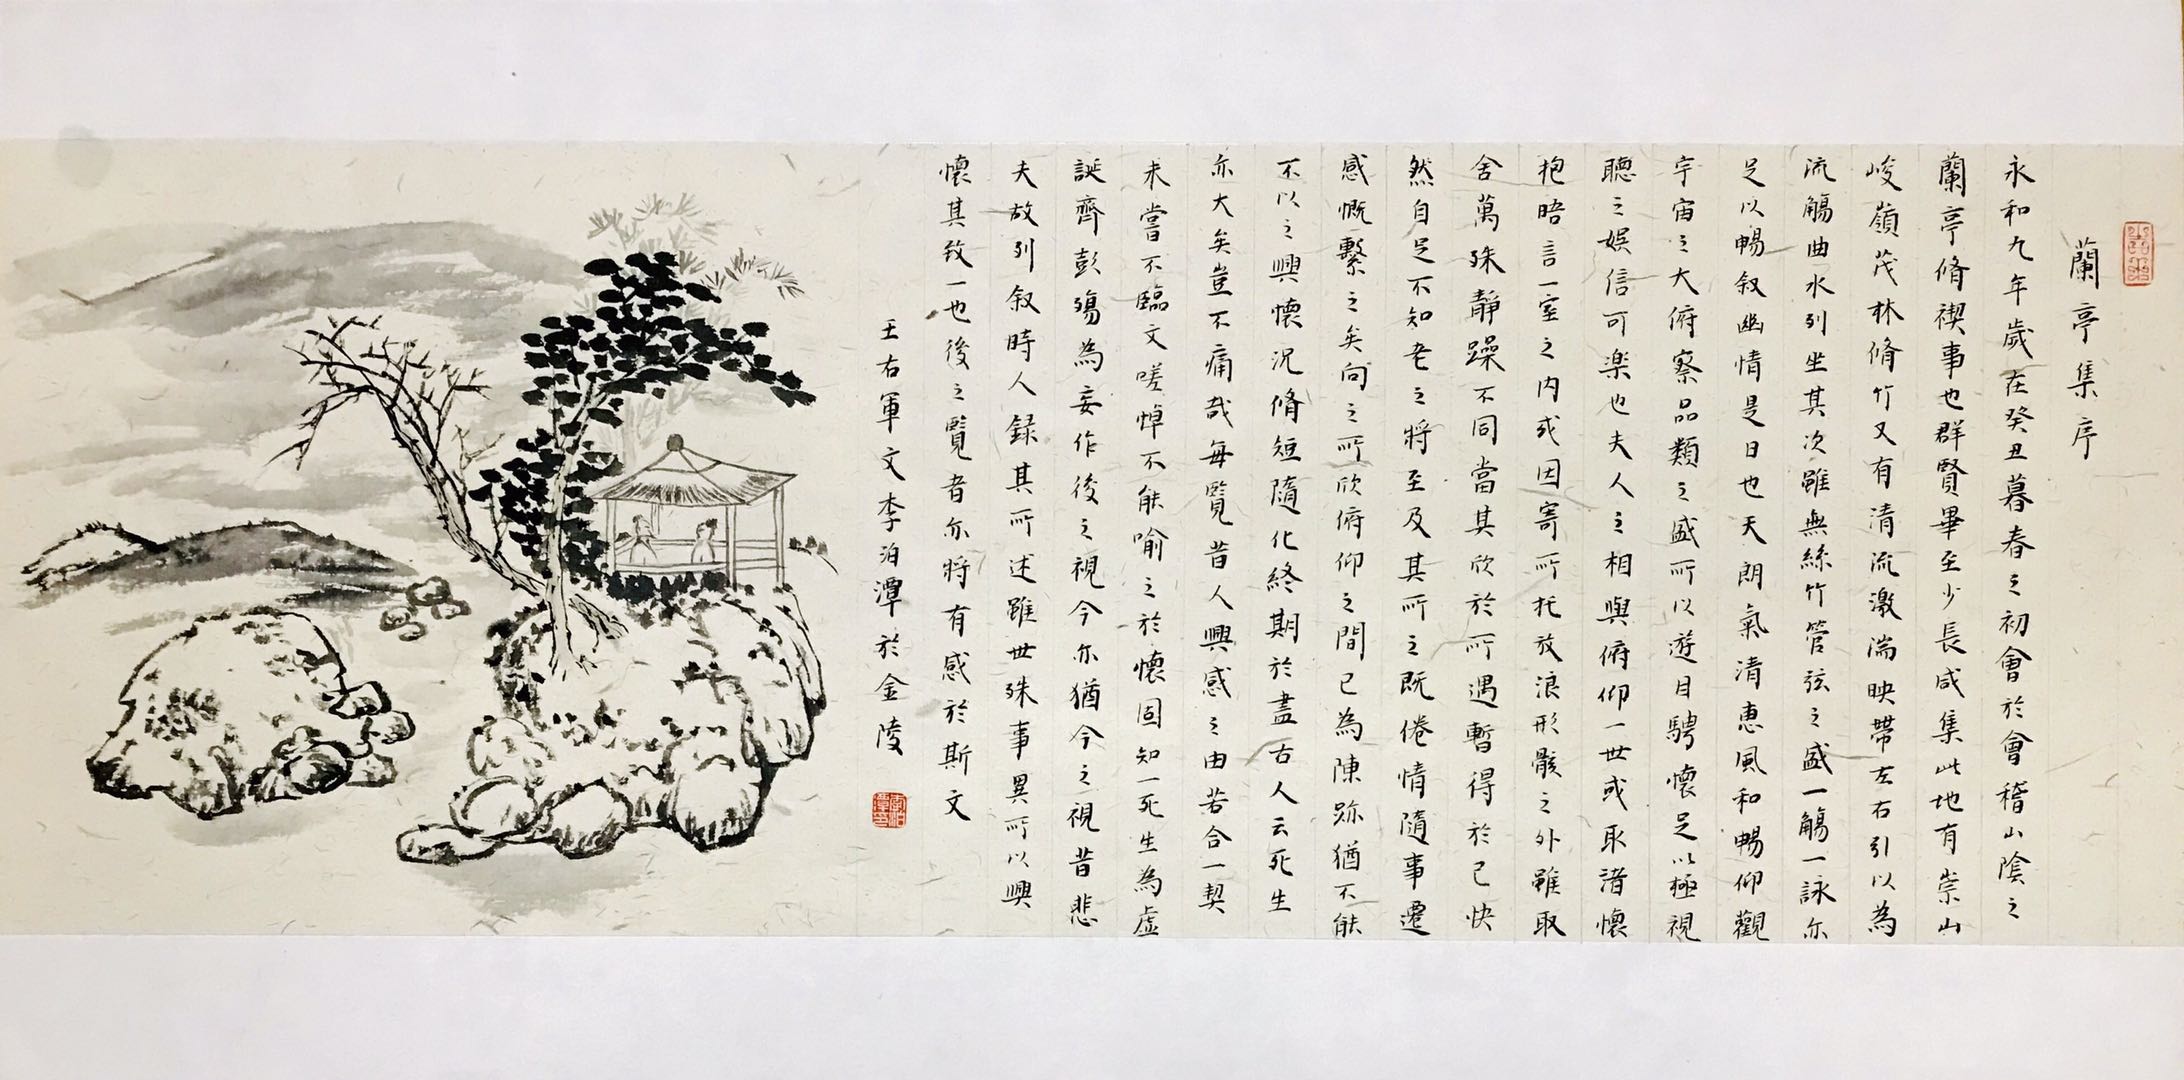 蘭亭集序
永和九年歲在癸丑暮春之初會於會稽山陰之
蘭亭脩禊事也群賢畢至少長咸集此地有崇山
峻嶺茂林脩竹又有清流激湍映帶左右引以為
流觴曲水列坐其次雖無絲竹管弦之盛一觴一詠亦
足以暢叙幽情是日也天朗氣清惠風和暢仰觀
宇宙之大俯察品類之盛所以遊目騁懷足以極視
聽之娯信可楽也夫人之相與俯仰一世或取諸懷
抱晤言一室之內或因寄所托放浪形骸之外雖取
舍萬殊靜躁不同當其欣於所遇暫得於己快
然自足不知老之將至及其所之既倦情隨事遷
感慨繫之矣向之所欣俯仰之間已為陳跡猶不能
不以之興懷況脩短隨化終期於盡古人云死生
亦大矣豈不痛哉每覽昔人興感之由若合一契
未嘗不臨文嗟悼不能喻之於懷固知一死生為虛
誕齊彭殤為妄作後之視今亦猶今之視昔悲
夫故列叙時人録其所述雖世殊事異所以興
懷其致一也後之覽者亦將有感於斯文
王右軍文李泊潭於金陵
李泊潭印